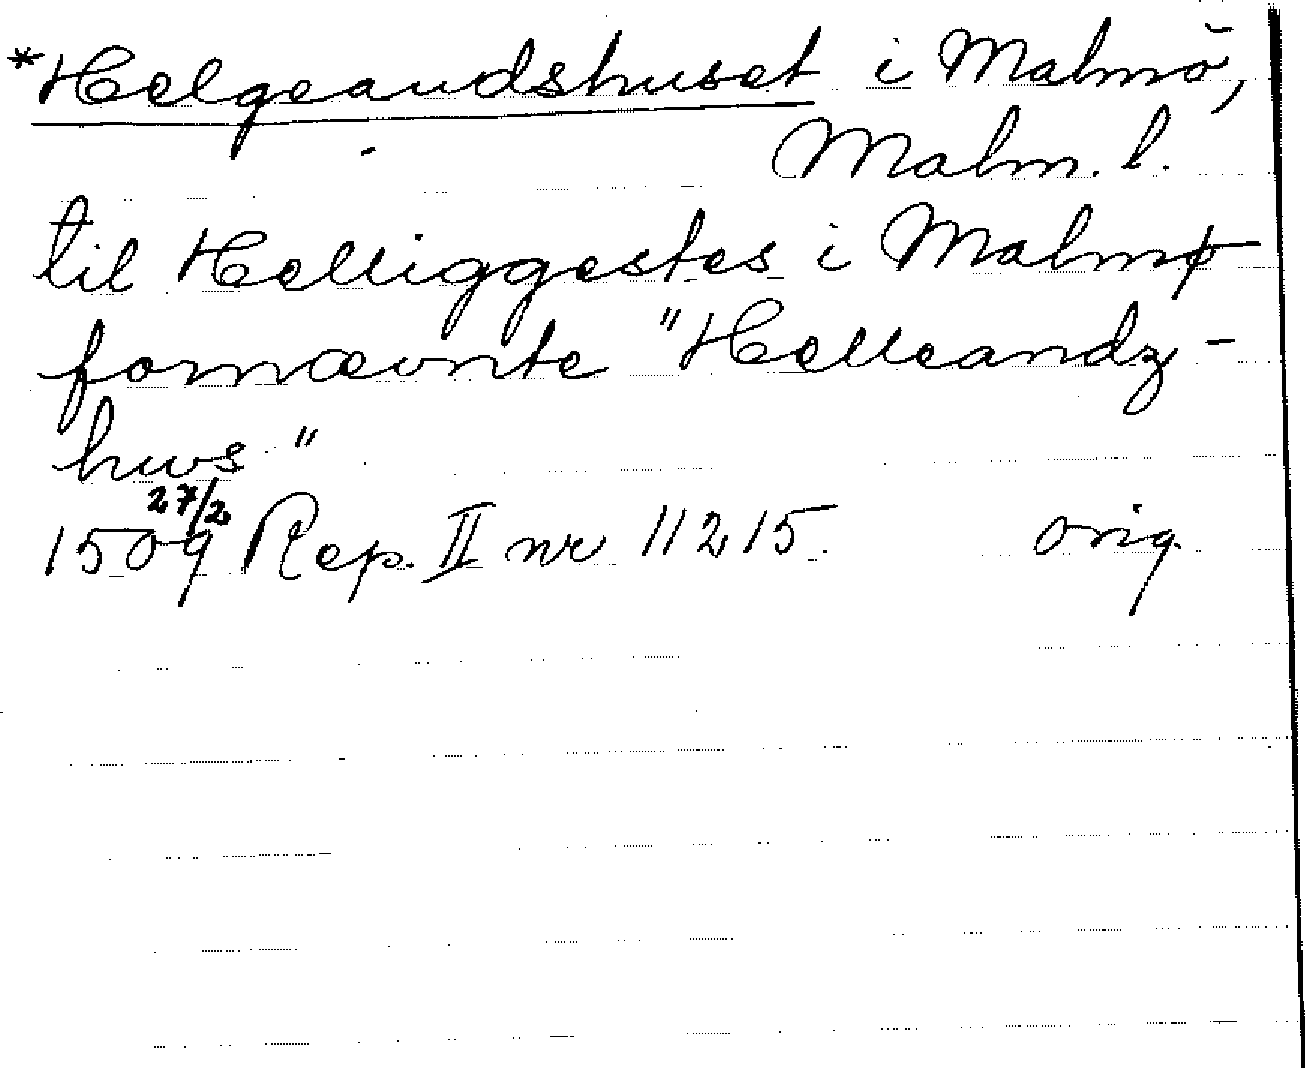 *Helgeandshuset i Malmö,
Malm. l.
til Helliggestes i Malmø
fornævnte "Helleandz-
hws"
27/2
1509 Rep. II nr 11215. orig.